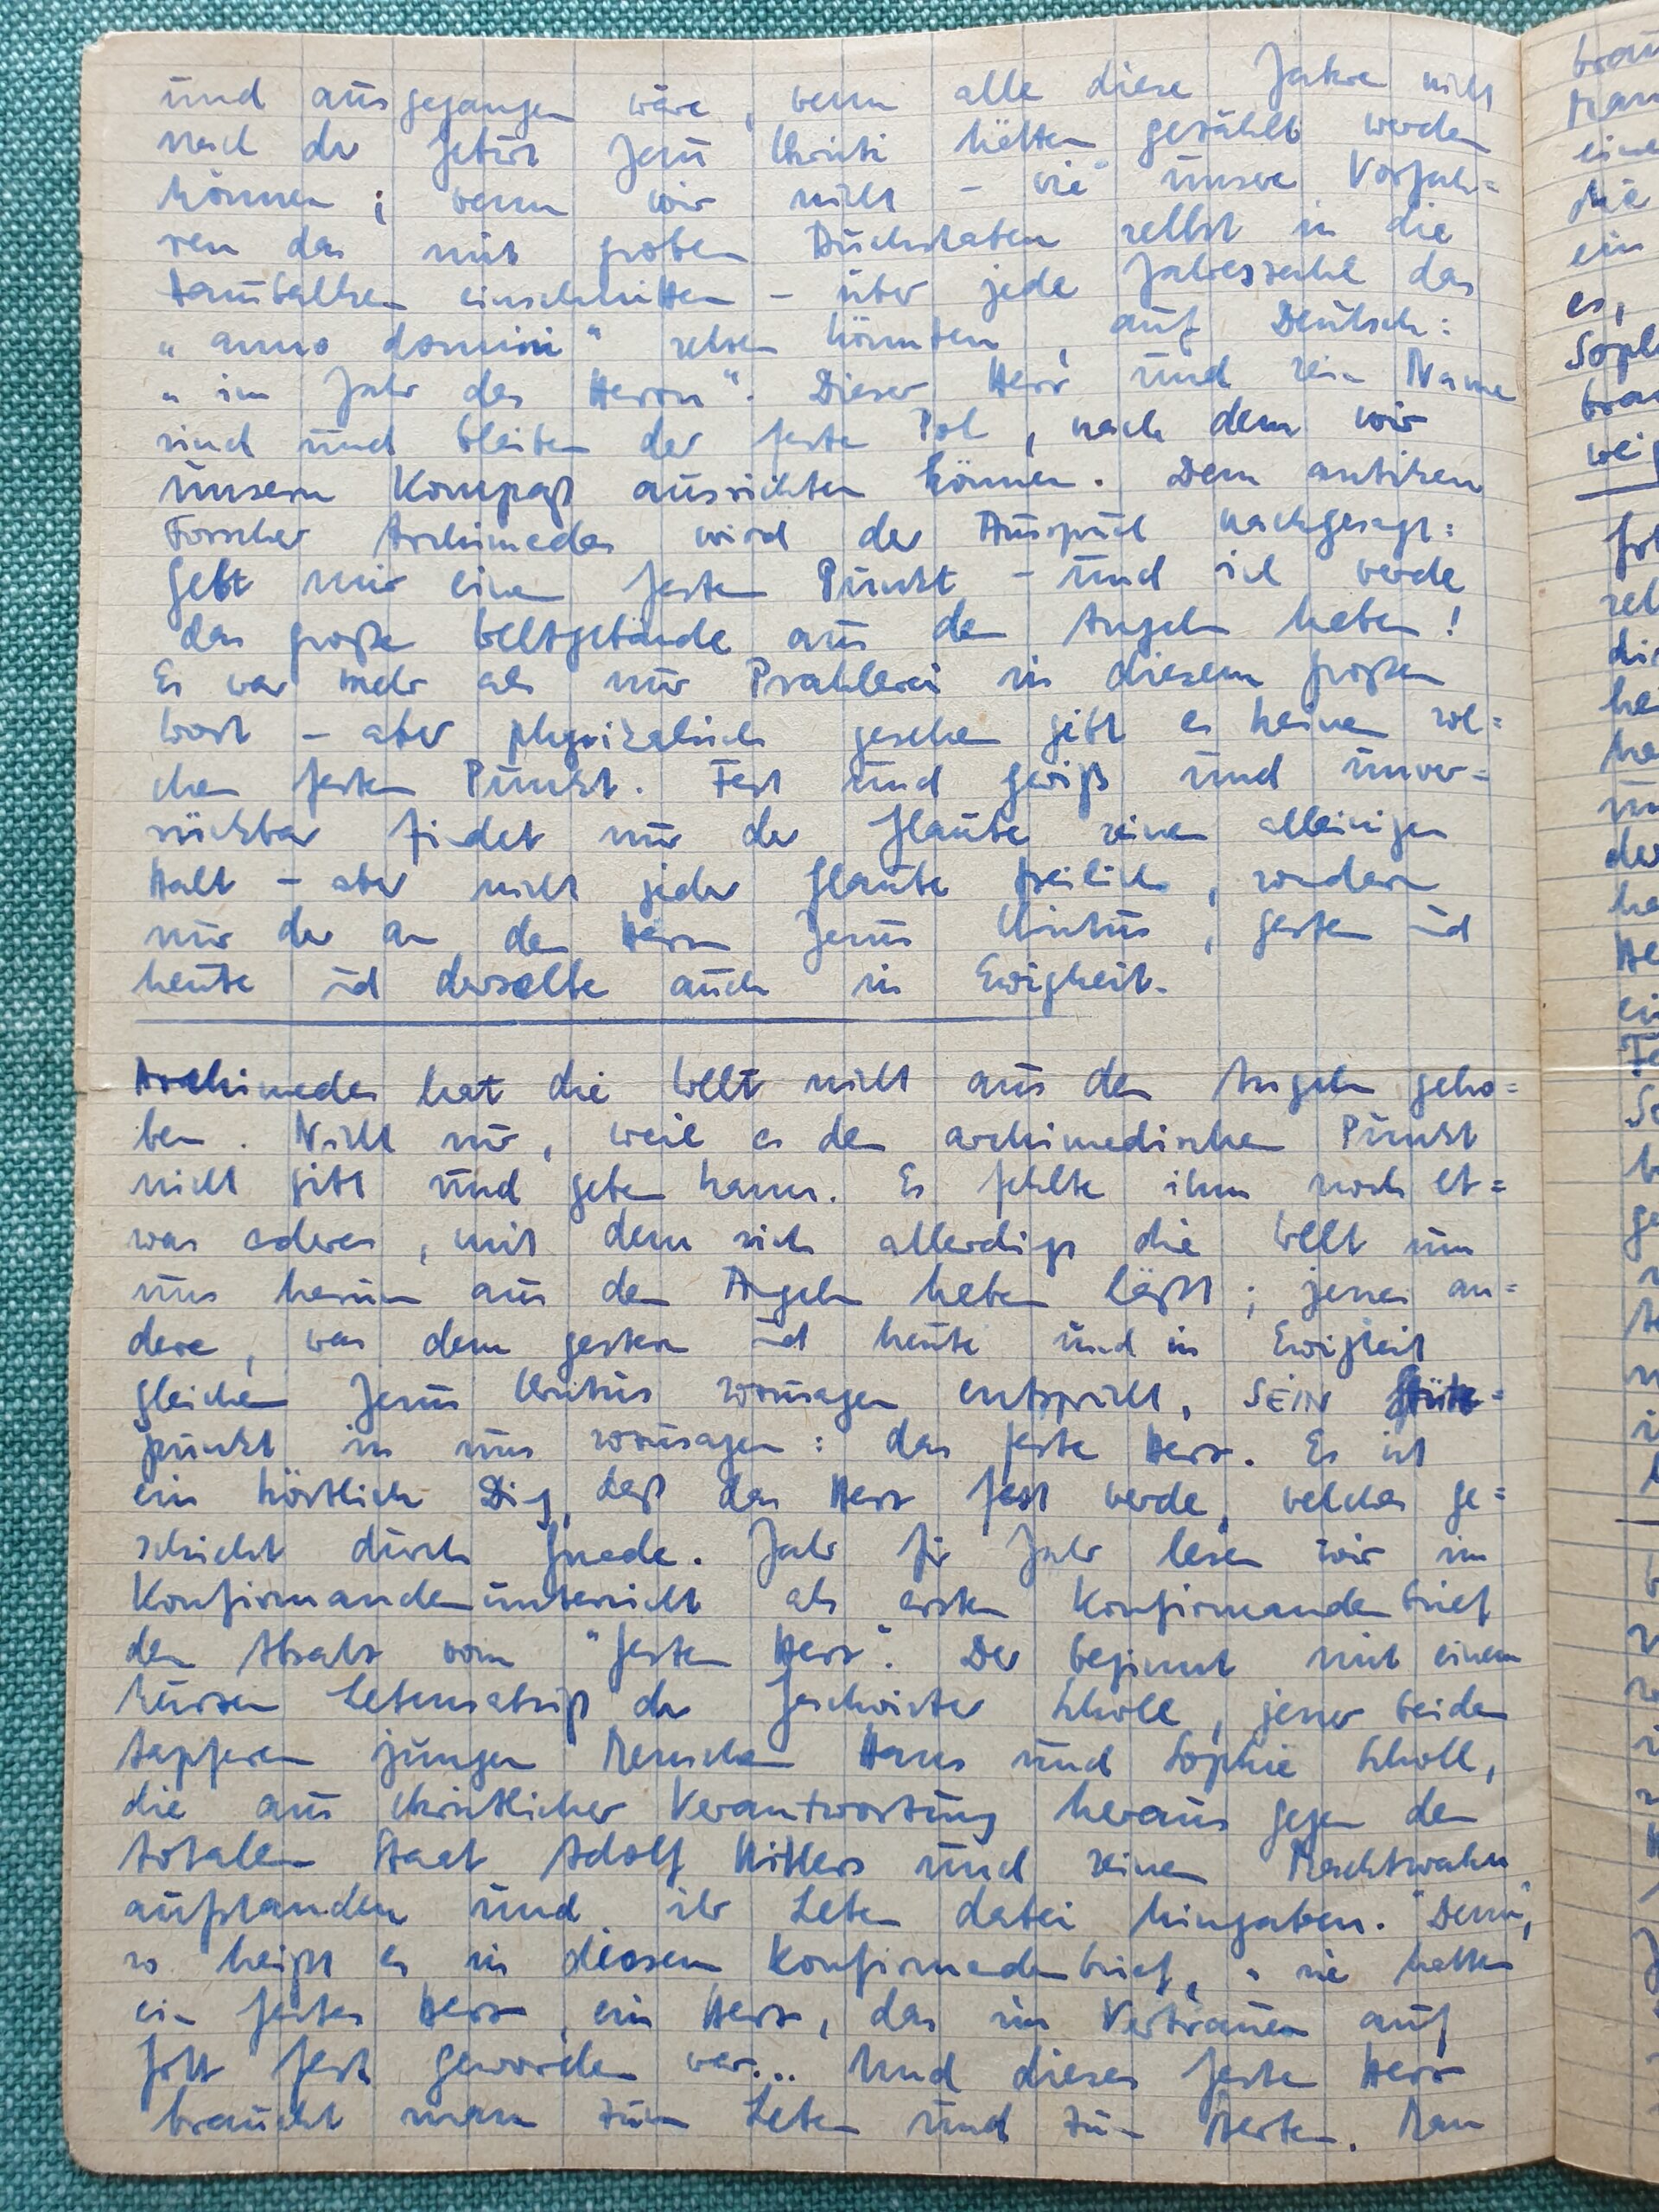 und ausgegangen wäre, wenn alle diese Jahre nicht
nach der Geburt Jesu Christi hätten gezählt werden
können; wenn wir nicht - wie unsere Vorfah=
ren das mit groben Buchstaben selbst in die
Hausbalken einschnitten - über jede Jahreszahl das
"anno domini" setzen könnten, auf Deutsch:
"im Jahr des Herrn". Dieser Herr und sein Name
sind und bleiben der feste Pol, nach dem wir
unsern Kompaß ausrichten können. Dem antiken
Forscher Archimedes wird der Ausspruch nachgesagt:
Gebt mir einen festen Punkt - und ich werde
das große Weltgebäude aus den Angeln heben!
Es war mehr als nur Prahlerei in diesem großen
Wort - aber physikalisch gesehen gibt es keinen sol=
chen festen Punkt. Fest und gewiß und unver=
rückbar findet nur der Glaube seinen alleinigen
Halt - aber nicht jeder Glaube freilich, sondern
nur der an den Herrn Jesus Christus, gestern ud
heute ud derselbe auch in Ewigkeit.
Archimedes hat die Welt nicht aus den Angeln geho=
ben. Nicht nur, weil es den archimedischen Punkt
nicht gibt und geben kann. Es fehlte ihm noch et=
was anderes, mit dem sich allerdings die Welt um
uns herum aus den Angeln heben läßt; jenes an=
dere, was dem gestern ud heute und in Ewigkeit
gleichen Jesus Christus sozusagen entspricht, SEIN Stütz=
punkt in uns sozusagen: das feste Herz. Es ist
ein köstlich Ding, daß das Herz fest werde, welches ge=
schieht durch Gnade. Jahr für Jahr lesen wir im
Konfirmandenunterricht als ersten Konfirmandenbrief
den Absatz vom "festen Herz". Der beginnt mit einem
kurzen Lebensabriß der Geschwister Scholl, jener beiden
tapferen jungen Menschen Hans und Sophie Scholl,
die aus christlicher Verantwortung heraus gegen den
totalen Staat Adolf Hitlers und seinen Machtwahn
aufstanden und ihr Leben dabei hingaben. "Denn",
so heißt es in diesem Konfirmandenbrief, "sie hatten
ein festes Herz, ein Herz, das im Vertrauen auf
Gott fest geworden war... Und dieses feste Herz
braucht man zum Leben und zum Sterben. Man